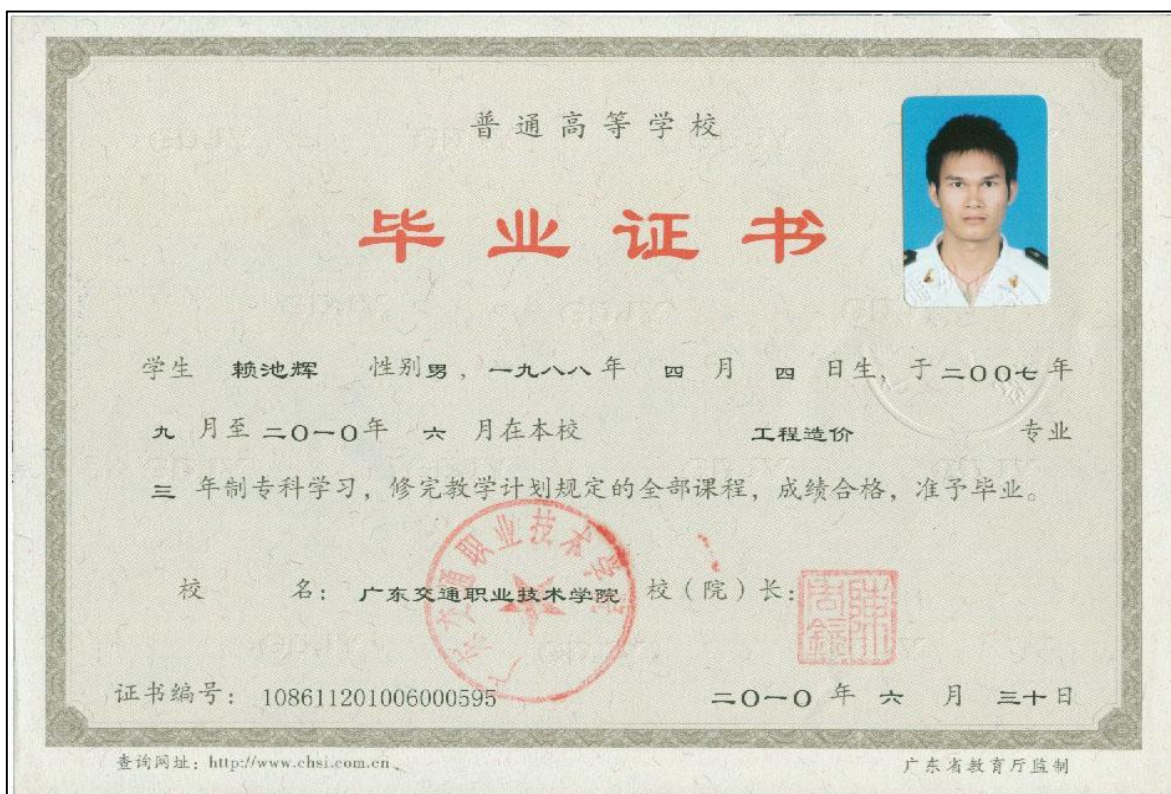 普通高等学校
毕业证书
学生 赖池辉 性别男，一九八八年 四 月 四 日生，于二〇〇七年
九 月至二〇一〇年 六 月在本校 工程造价 专业
三 年制专科学习，修完教学计划规定的全部课程，成绩合格，准予毕业。
校 名：广东交通职业技术学院 校（院）长：
广东交通职业技术学院
证书编号：108611201006000595 二〇一〇 年 六 月 三十日
查询网址：http://www.chsi.com.cn 广东省教育厅监制